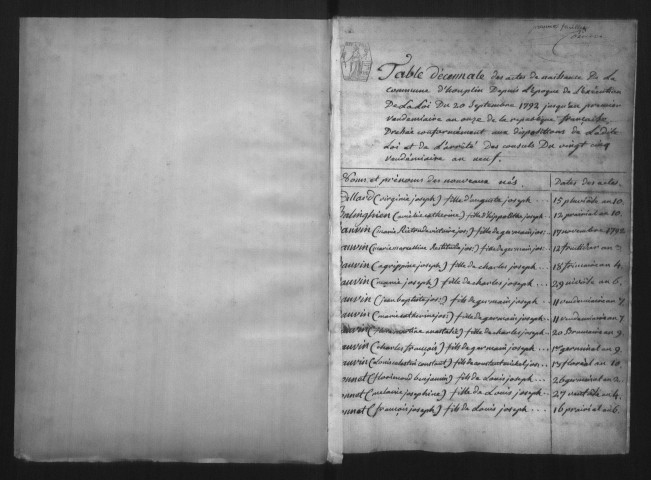 Table Décennale des actes de naissance de la
commune d'houplin Depuis l'Epoque de l'exécution
De La Loi Du 20 Septembre 1792 jusqu'au premier
vendemiaire an onze de la republique française,
Dressée conformément aux dispositions de Ladite
Loi et de L'arrêté Des consuls Du vingt cinq
vendémiaire an neuf.
Noms et prénoms des nouveaux nés. Dates des actes.
(virginie joseph) fille d'auguste joseph 15 pluviôse an 10.
(amélie catherine) fille d'hippolithe joseph 12 prairial an 10.
auvin (marie victoire jos:) fille de germain jos: novembre 1792
auvin (marie marcelline jos:) fille de germain jos: 12 fructidor an
auvin (agrippine joseph) fille de charles joseph 18 frimaire an 4.
auvin (marie joseph) fille de charles joseph 29 nivôse an 6.
auvin (jean baptiste jos:) fils de germain joseph 11 vendemiaire an 7.
auvin (marie catherine jos:) fille de germain joseph 11 vendemiaire an 7.
auvin (anastasie) fille de charles joseph 20 Brumaire an 9.
auvin (charles françois) fils de germain joseph germinal an 9.
auvin (Louis celestin constant) fils de constant michel jos: 13 floréal an 10.
onnet (florimond benjamin) fils de Louis joseph 26 germinal an 2.
onnet (melanie josephine) fille de Louis joseph 27 ventôse an 4.
onnet (françois joseph) fils de Louis joseph 16 prairial an 6.